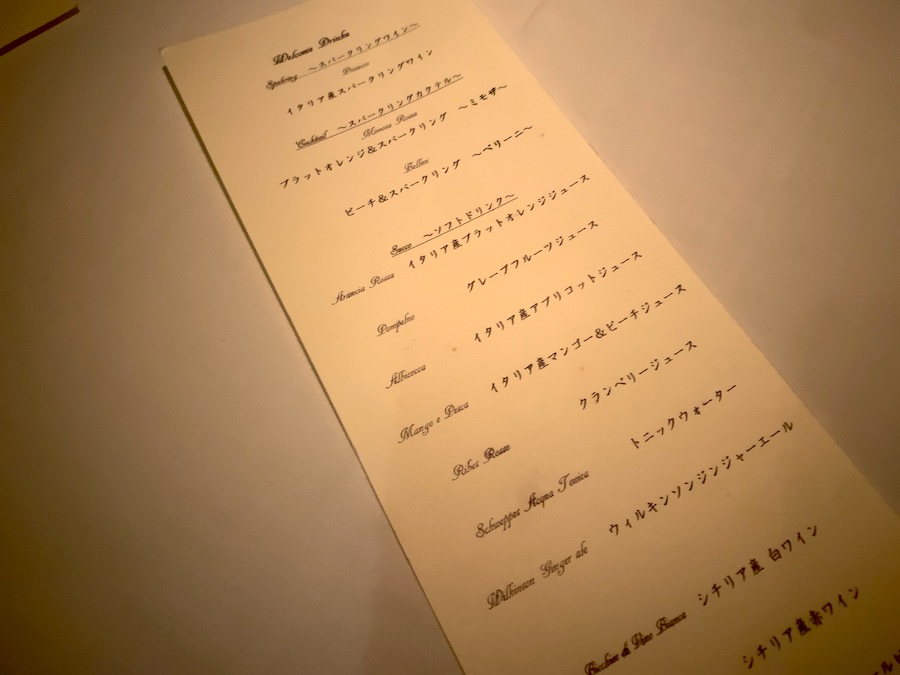 Welcome Drinks
Spakring　～スパークリングワイン～
Prosecco
イタリア産スパークリングワイン
Cocktail　～スパークリングカクテル～
Mimosa Rossa
ブラットオレンジ&スパークリング　～ミモザ～
Bellini
ピーチ&スパークリング　～ベリーニ～
Succo　～ソフトドリンク～
Arancia Rossa　イタリア産ブラットオレンジジュース
Pompelmo　グレープフルーツジュース
Albicocca　イタリア産アプリコットジュース
Mango e Pesca　イタリア産マンゴー&ピーチジュース
Ribes Rosso　クランベリージュース
Schweppes Acqua Tonica　トニックウォーター
Wilkinson Ginger ale　ウィルキンソンジンジャーエール
Bicchire di Vino Bianca　シチリア産 白ワイン
シチリア産赤ワイン